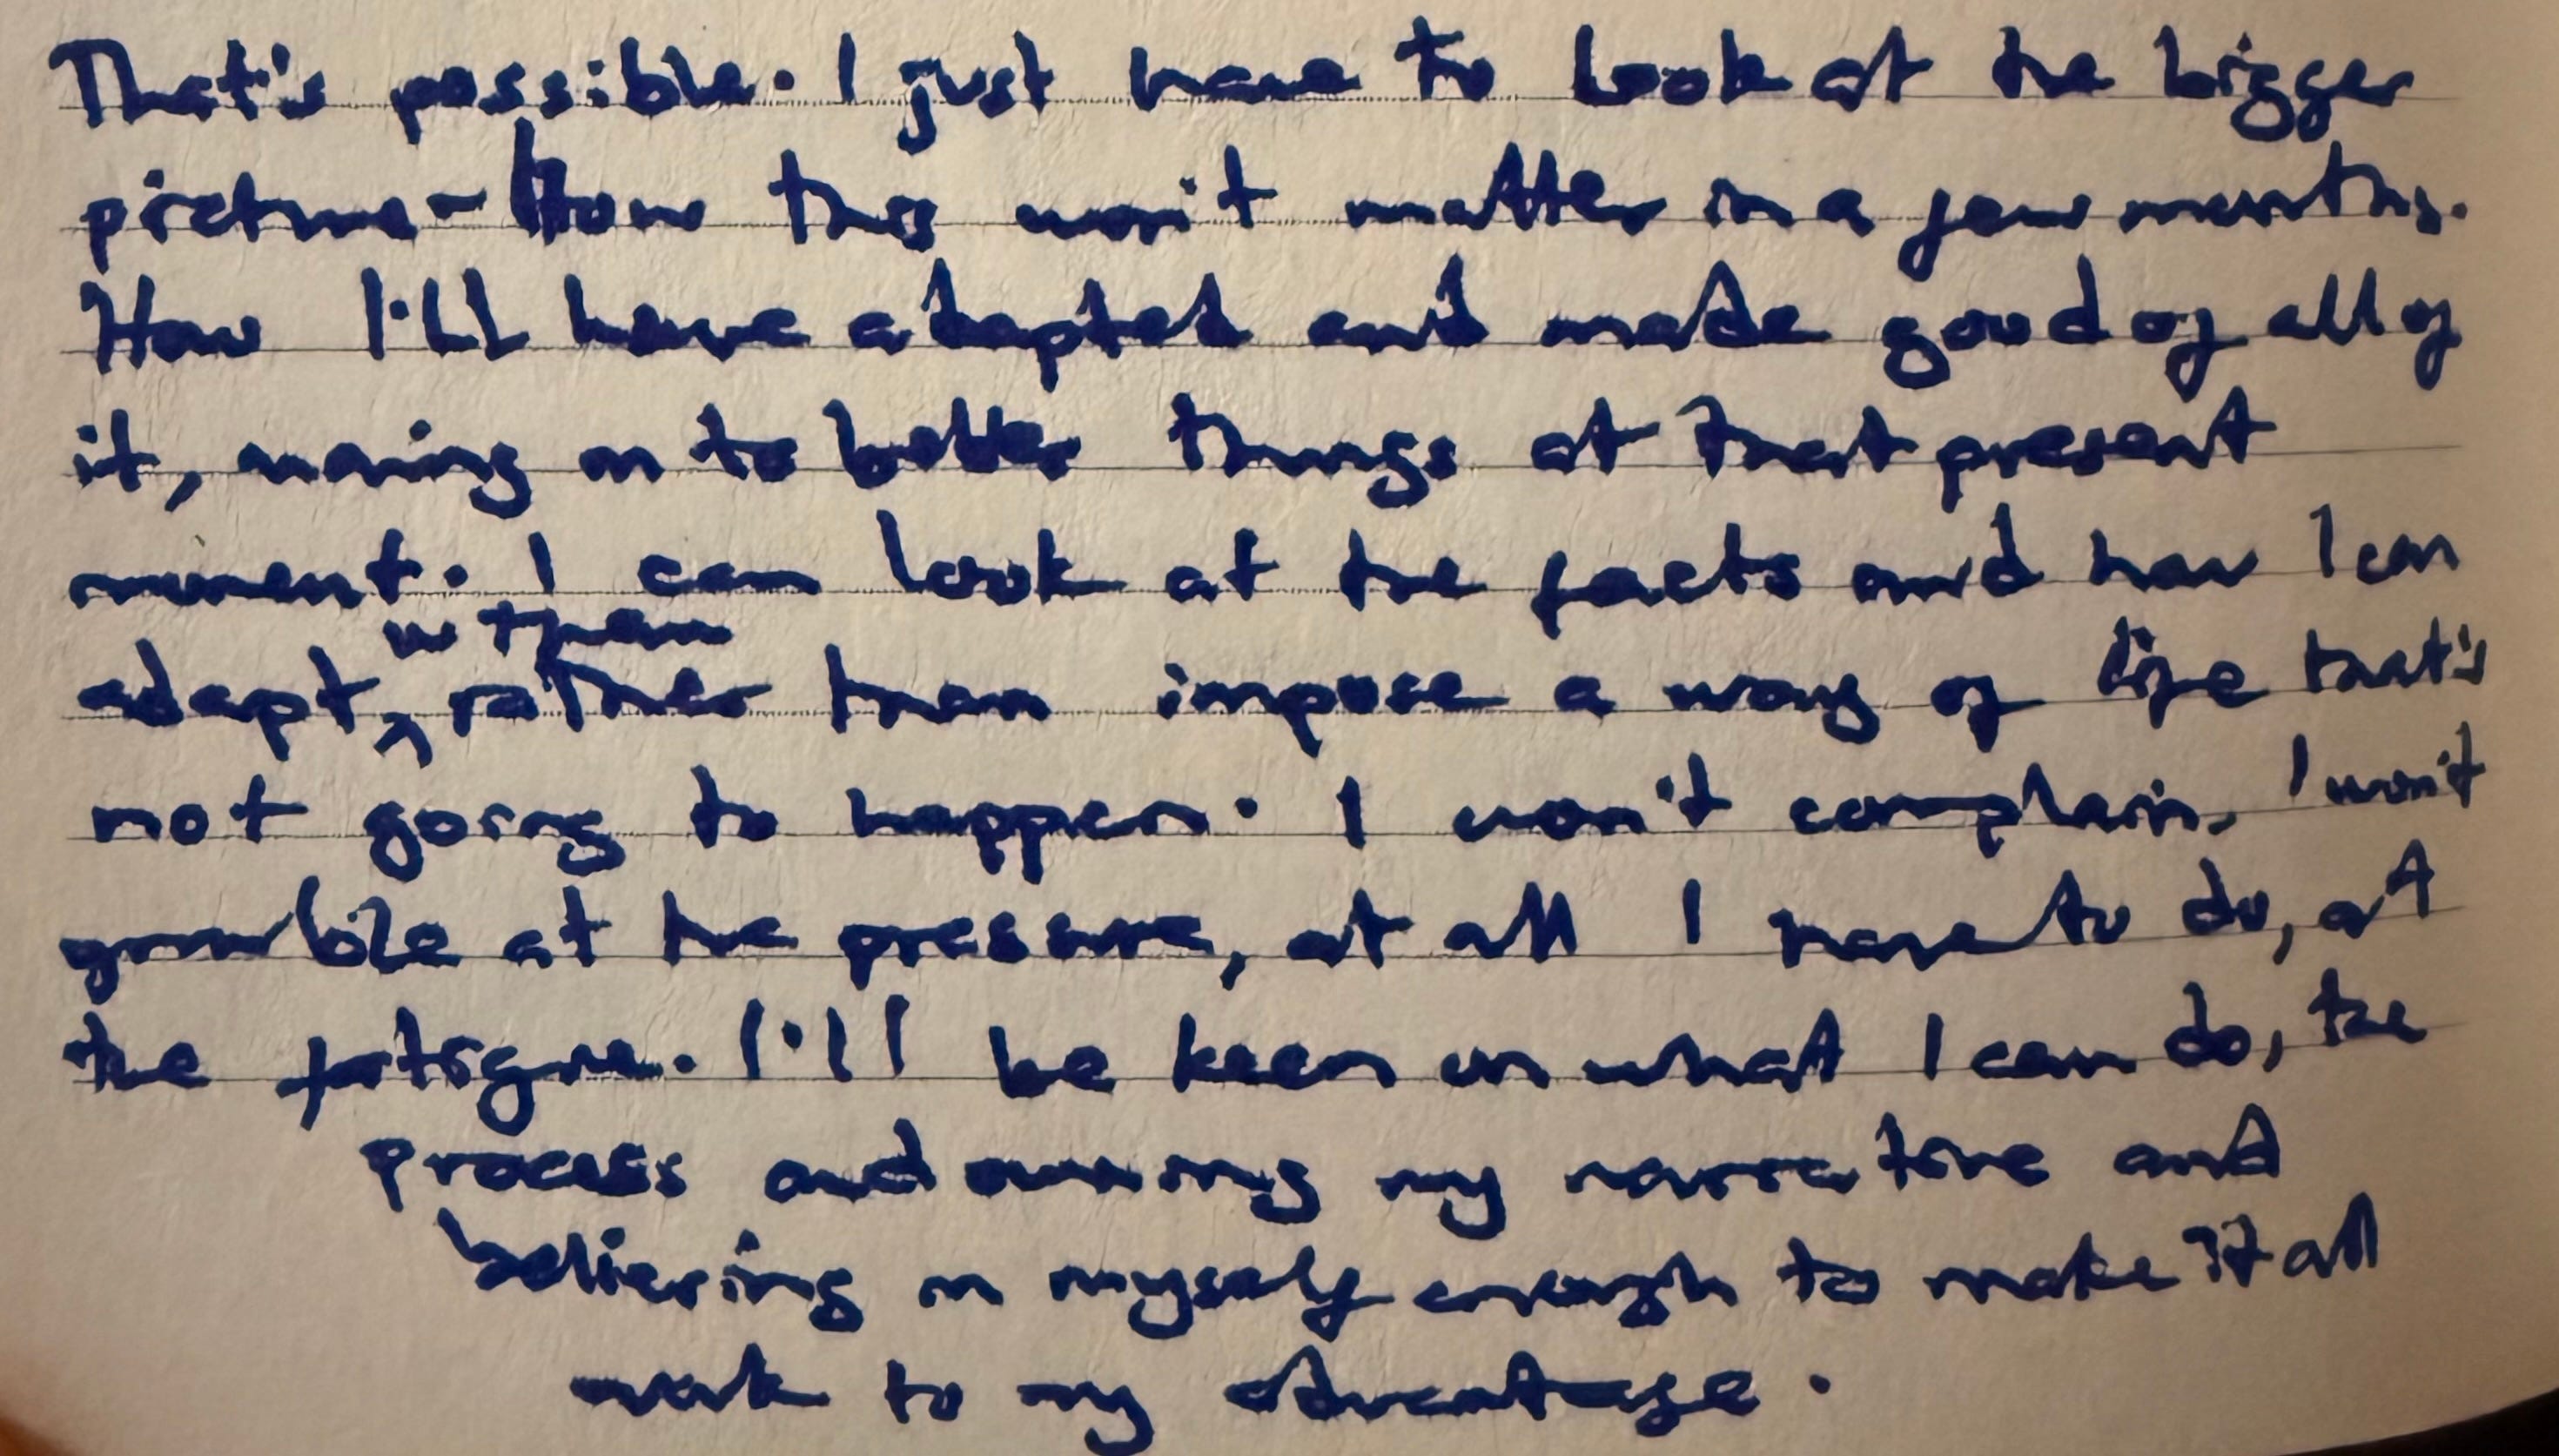 That's possible. I just have to look at the bigger
picture - How this won't matter in a few months.
How I'll have adapted and made good of all of
it, moving on to better things at that present
moment. I can look at the facts and how I can
to them
adapt, rather than impose a way of life that's
not going to happen. I won't complain, I won't
grumble at the pressure, at all I have to do, at
the fatigue. I'll be keen on what I can do, the
process and owning my narrative and
believing in myself enough to make it all
work to my advantage.